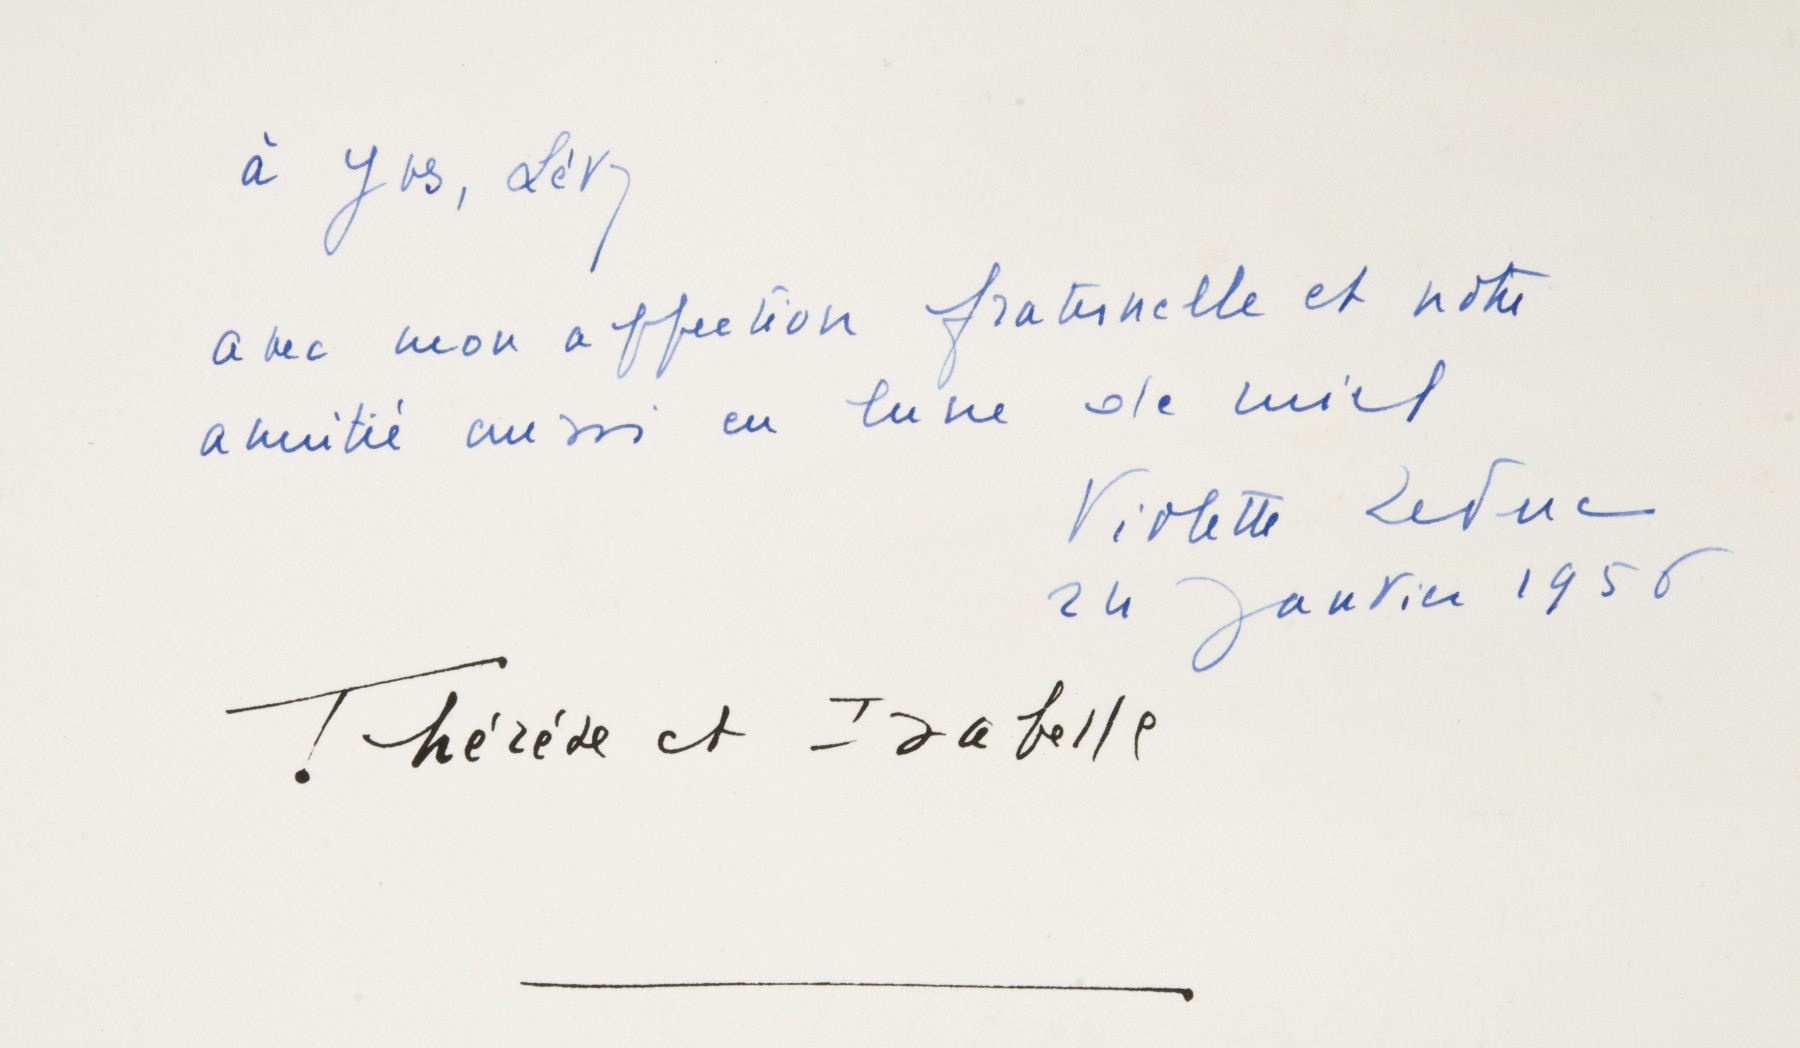 à Yves, Lévy
avec mon affection fraternelle et notre
amitié aussi en lune de miel
Violette Leduc
24 Janvier 1956
Thérése et Isabelle